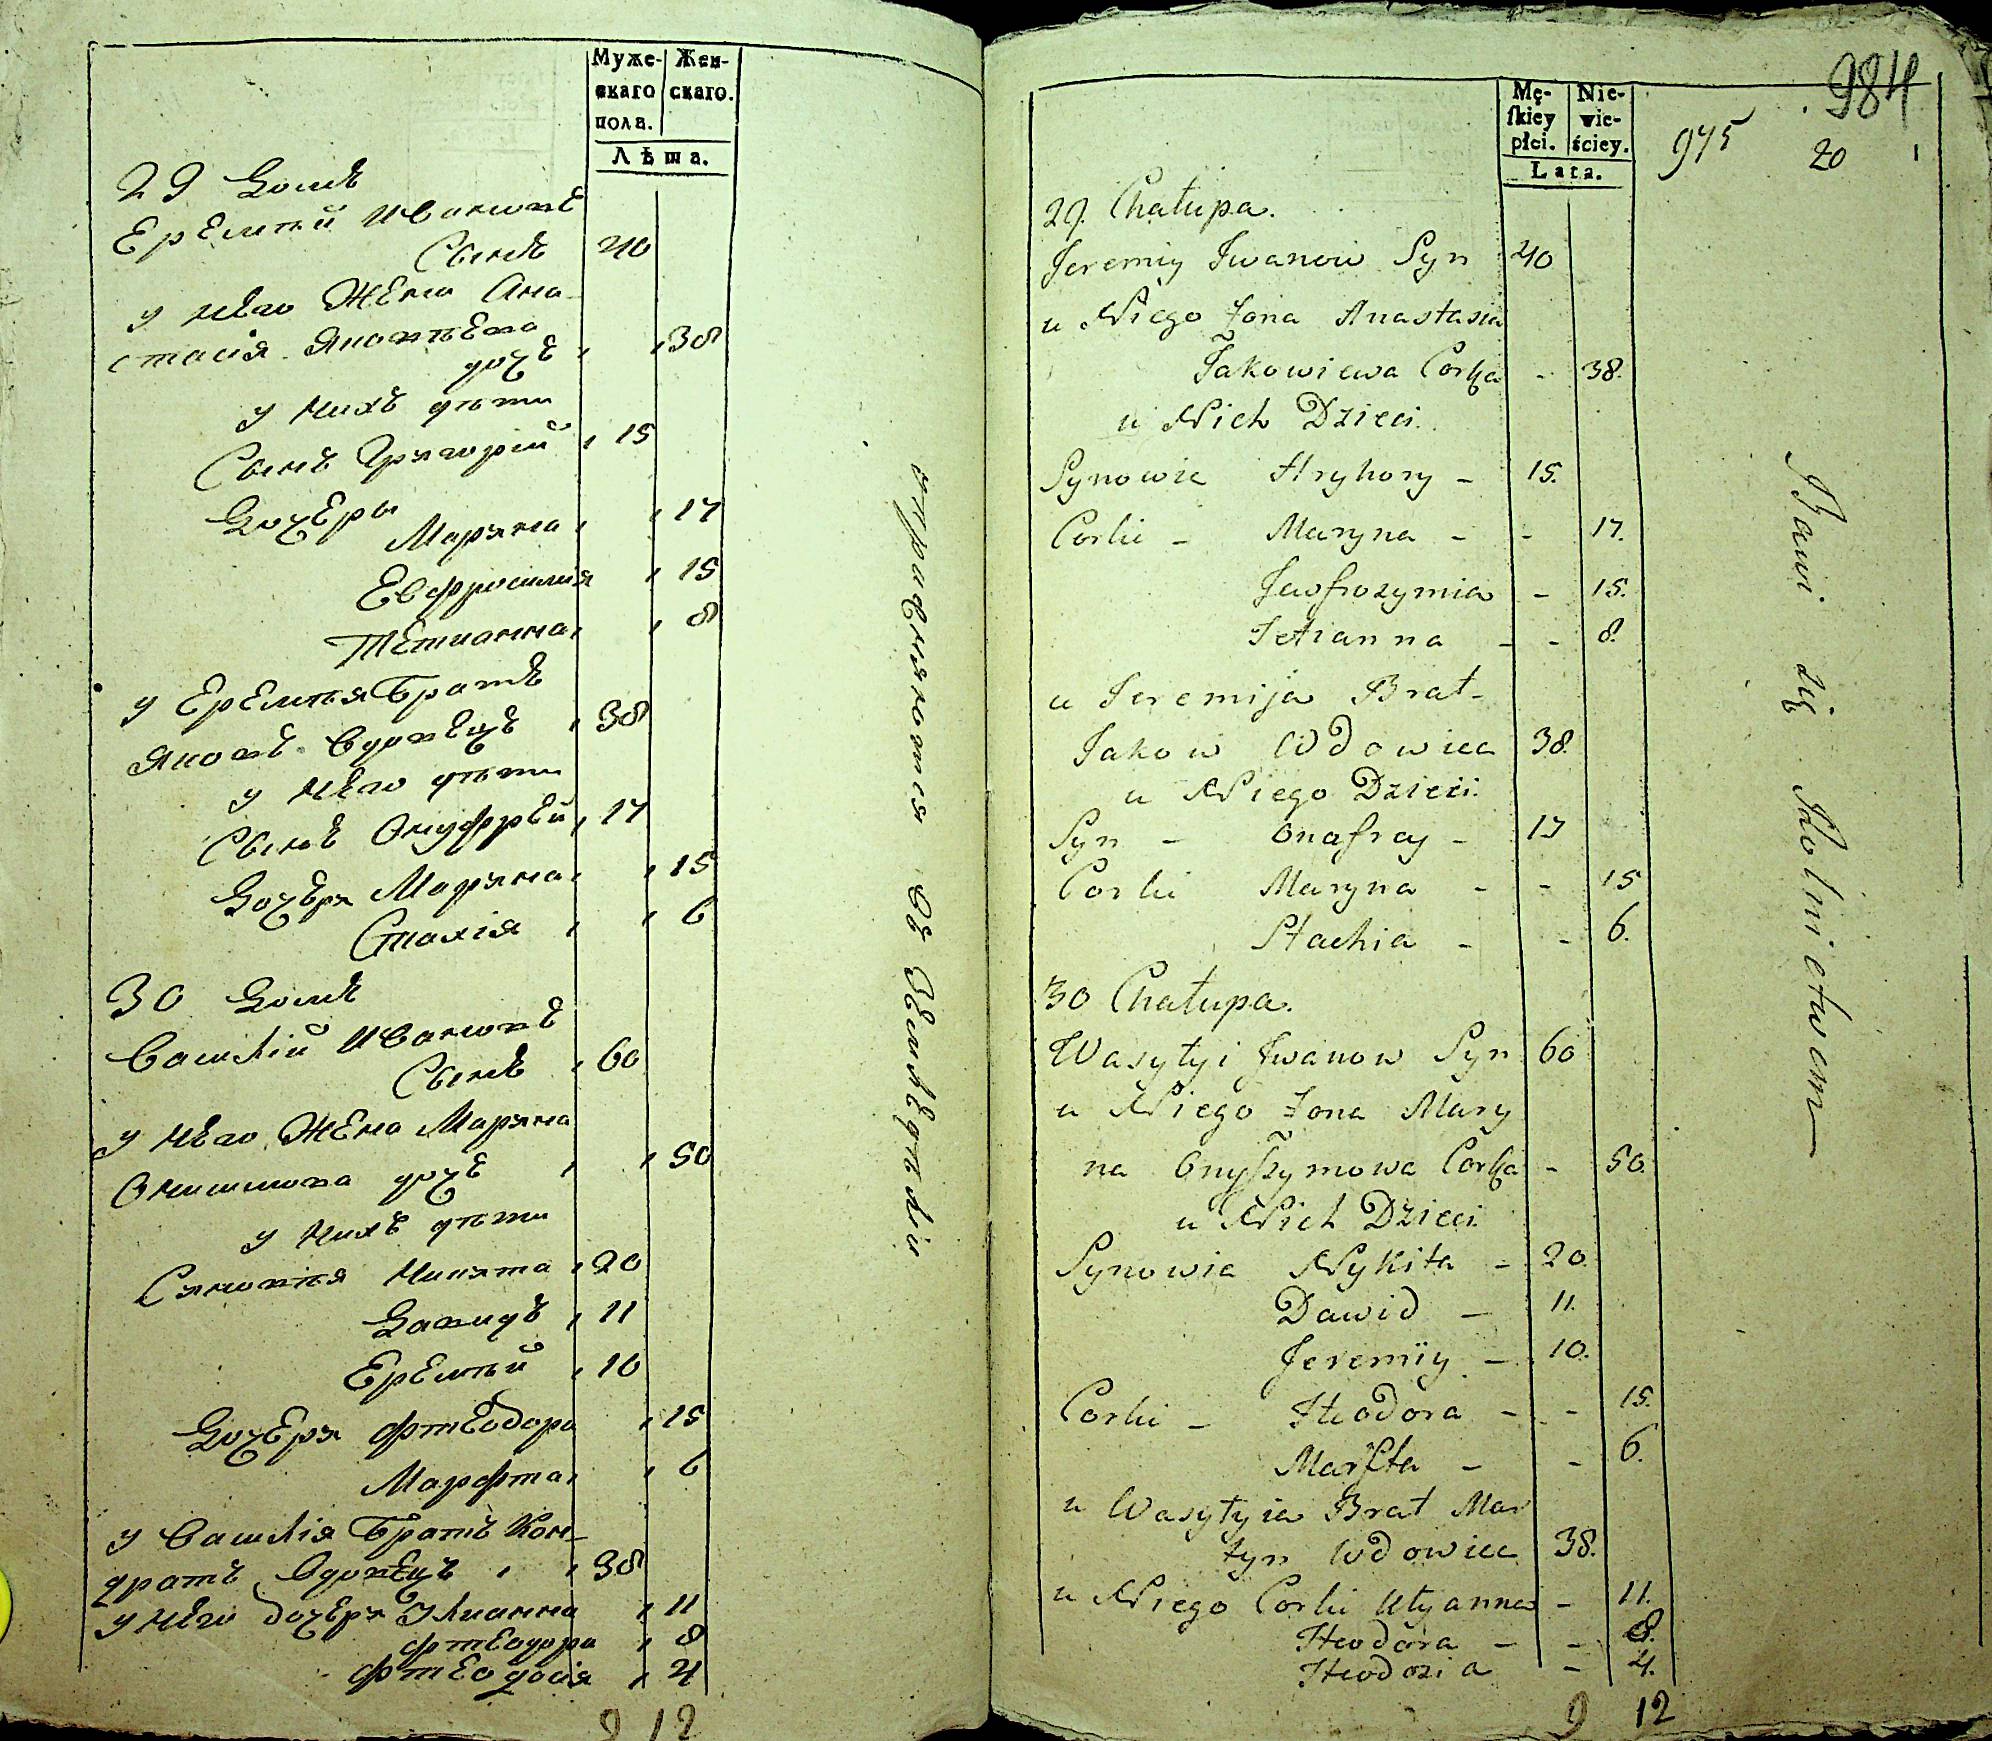 Муже- Жен-
скаго скаго.
пола.
Лѣта.
29 Домъ
Еремѣй Ивановъ
Сынъ 40
у него Жена Ана-
стасія Яковлева
дочь 38
у нихъ дѣти
Сынъ Григорій 15
Дочеры
Марина 17
Евфросинія 15
Тетианна 8
у Еремѣя Братъ
Яковъ Вдовецъ 38
у него дѣти
Сынъ Онуфрей 17
Дочери Марина 15
Стахія 6
30 Домъ
Василій Ивановъ
Сынъ 60
у него Жена Марина
Онисимова дочь 50
у нихъ дѣти
Синовья Никита 20
Давидъ 11
Еремѣй 10
Дочери Фтеодора 15
Марфта 6
у Василія Братъ Кон-
дратъ Вдовецъ 38
у него дочери Улианна 11
Фтеодора 8
Фтеодосія 4
9 12
въ Земледѣліи
упражняются
984
975 20
Mę- Nie-
ſkiey wie-
płci. ściey.
Lata.
29. Chałupa.
Jeremiy Iwanow Syn 40
u Niego Żona Anastasia
Jakowiewa Corka - 38.
u Nich Dzieci.
Synowie Hryhory - 15.
Corki - Maryna - - 17.
Jewfrozymia - 15.
Tetianna - - 8.
u Jeremija Brat-
Jakow Wdowiec 38.
u Niego Dzieci.
Syn - Onafrey - 17
Corki Maryna - - 15
Stachia - - 6.
30 Chałupa.
Wasyłyi Iwanow Syn 60
u Niego Żona Mary
na Onyſzymowa Corka - 50.
u Nich Dzieci.
Synowie Nykita - 20.
Dawid - 11.
Jeremiy - 10.
Corki - Fteodora - - 15.
Marfta - - 6.
u Wasyłyia Brat Mar
tyn Wdowiec 38.
u Niego Corki Ulyanna - 11.
Fteodora - - 8.
Fteodozia - 4.
9 12
Bawi się Rolnictwem